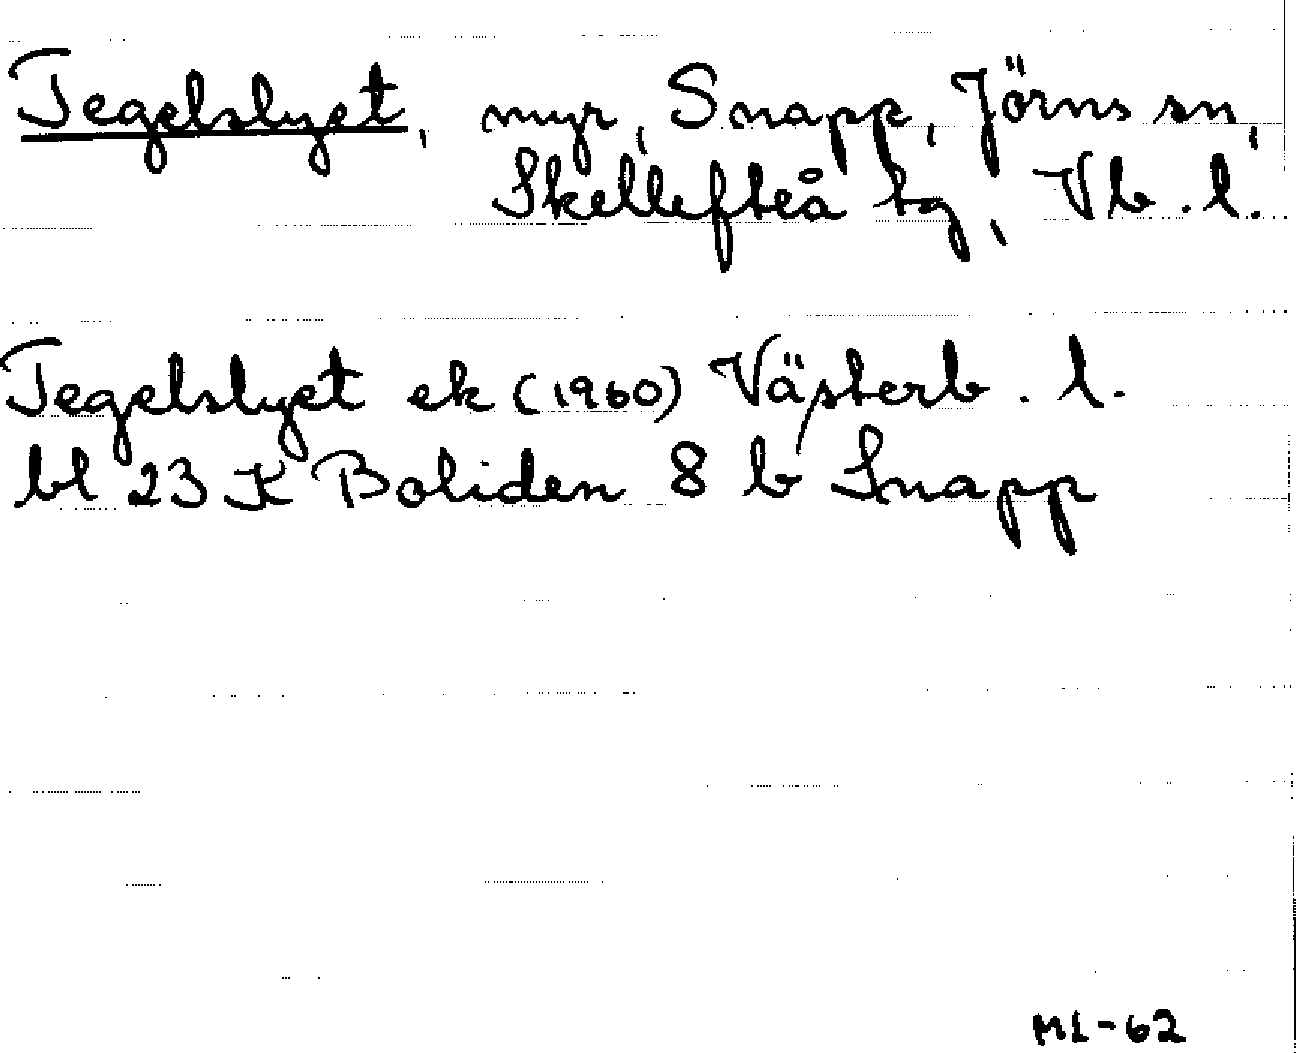 Tegelslyet, myr, Snapp, Jörns sn,
Skellefteå tg, Vb. l.
Tegelslyet ek (1960) Västerb. l.
bl 23 K Boliden 8 b Snapp
ML-62